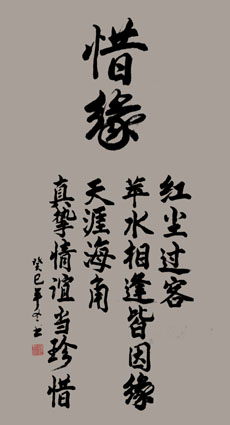 惜缘
红尘过客
萍水相逢皆因缘
天涯海角
真挚情谊当珍惜
癸巳年冬书